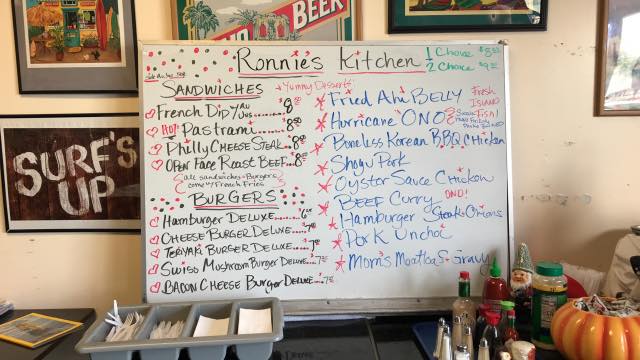 BEER
Ronnie's Kitchen
1 Choice
2 Choice
SANDWICHES
Yummy Desserts
French Dip w/ Au Jus
Hot Pastrami
Philly Cheese Steak
Open Face Roast Beef
all sandwiches & Burgers
come w/ French Fries
BURGERS
Hamburger Deluxe
Cheese Burger Deluxe
Teriyaki Burger Deluxe
Swiss Mushroom Burger Deluxe
Bacon Cheese Burger Deluxe
Fried Ahi Belly
Fresh
Island
Fish!
Hurricane Ono
Boneless Korean B.B.Q. Chicken
Shoyu Pork
Oyster Sauce Chicken
Beef Curry
Hamburger Steak & Onions
ONO!
Pork Unchoi
Mom's Meatloaf & Gravy
SURF'S
UP